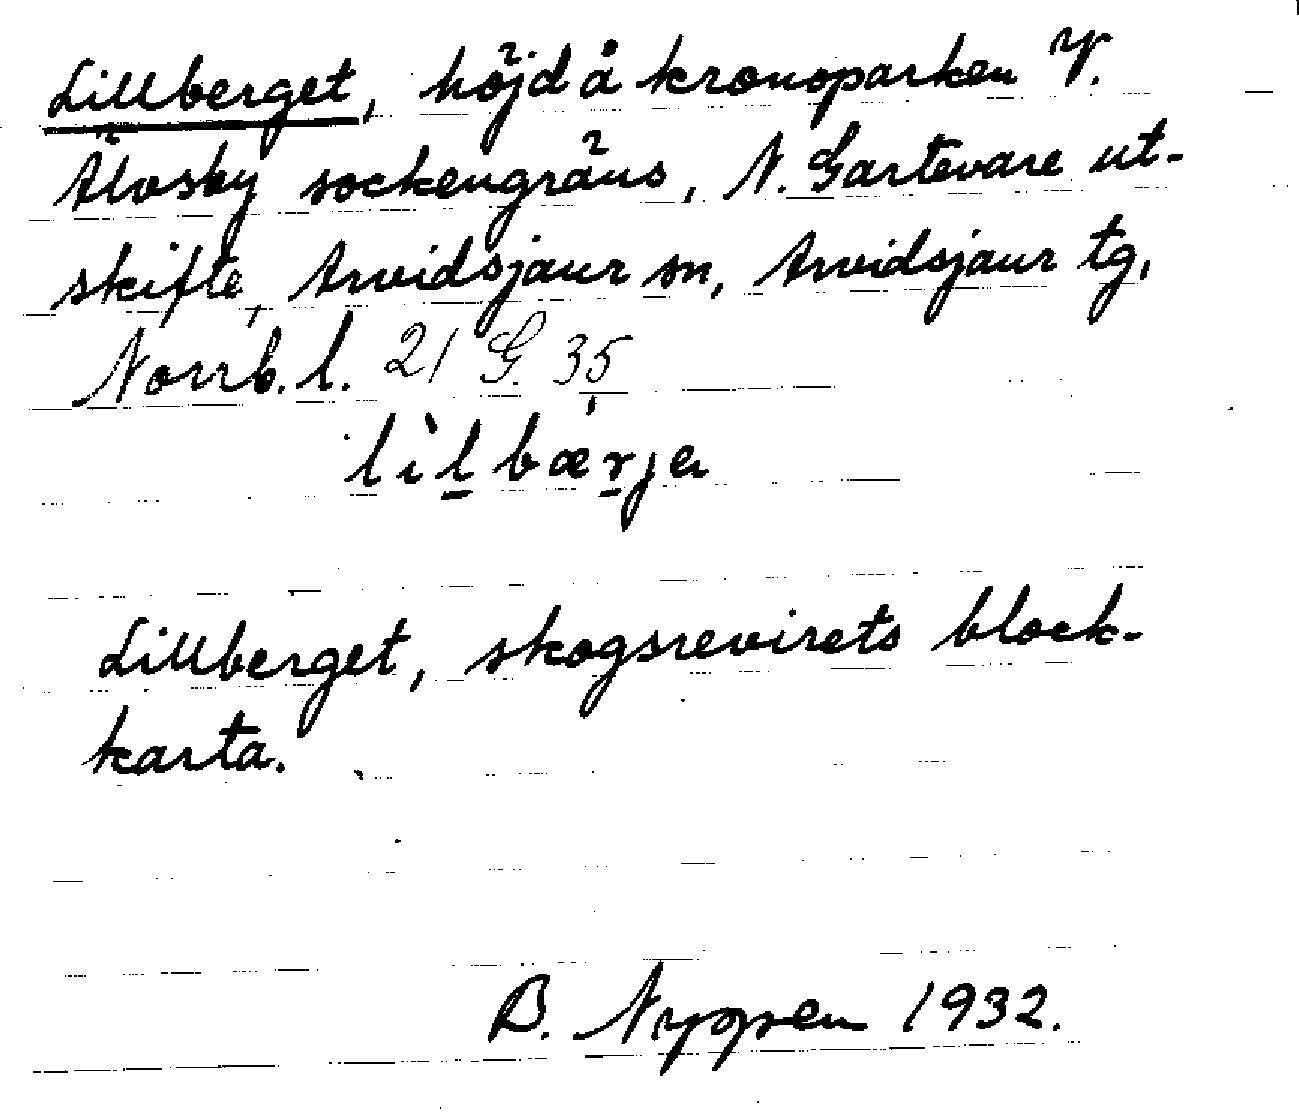 Lillberget, höjd å kronoparken V.
Älvsby sockengräns, N. Gartevare ut-
skifte, Arvidsjaur sn, Arvidsjaur tg,
Norrb. l. 21 G. 35
lìl̠bær̠je
Lillberget, skogsrevirets block-
karta.
B. Nyppen 1932.